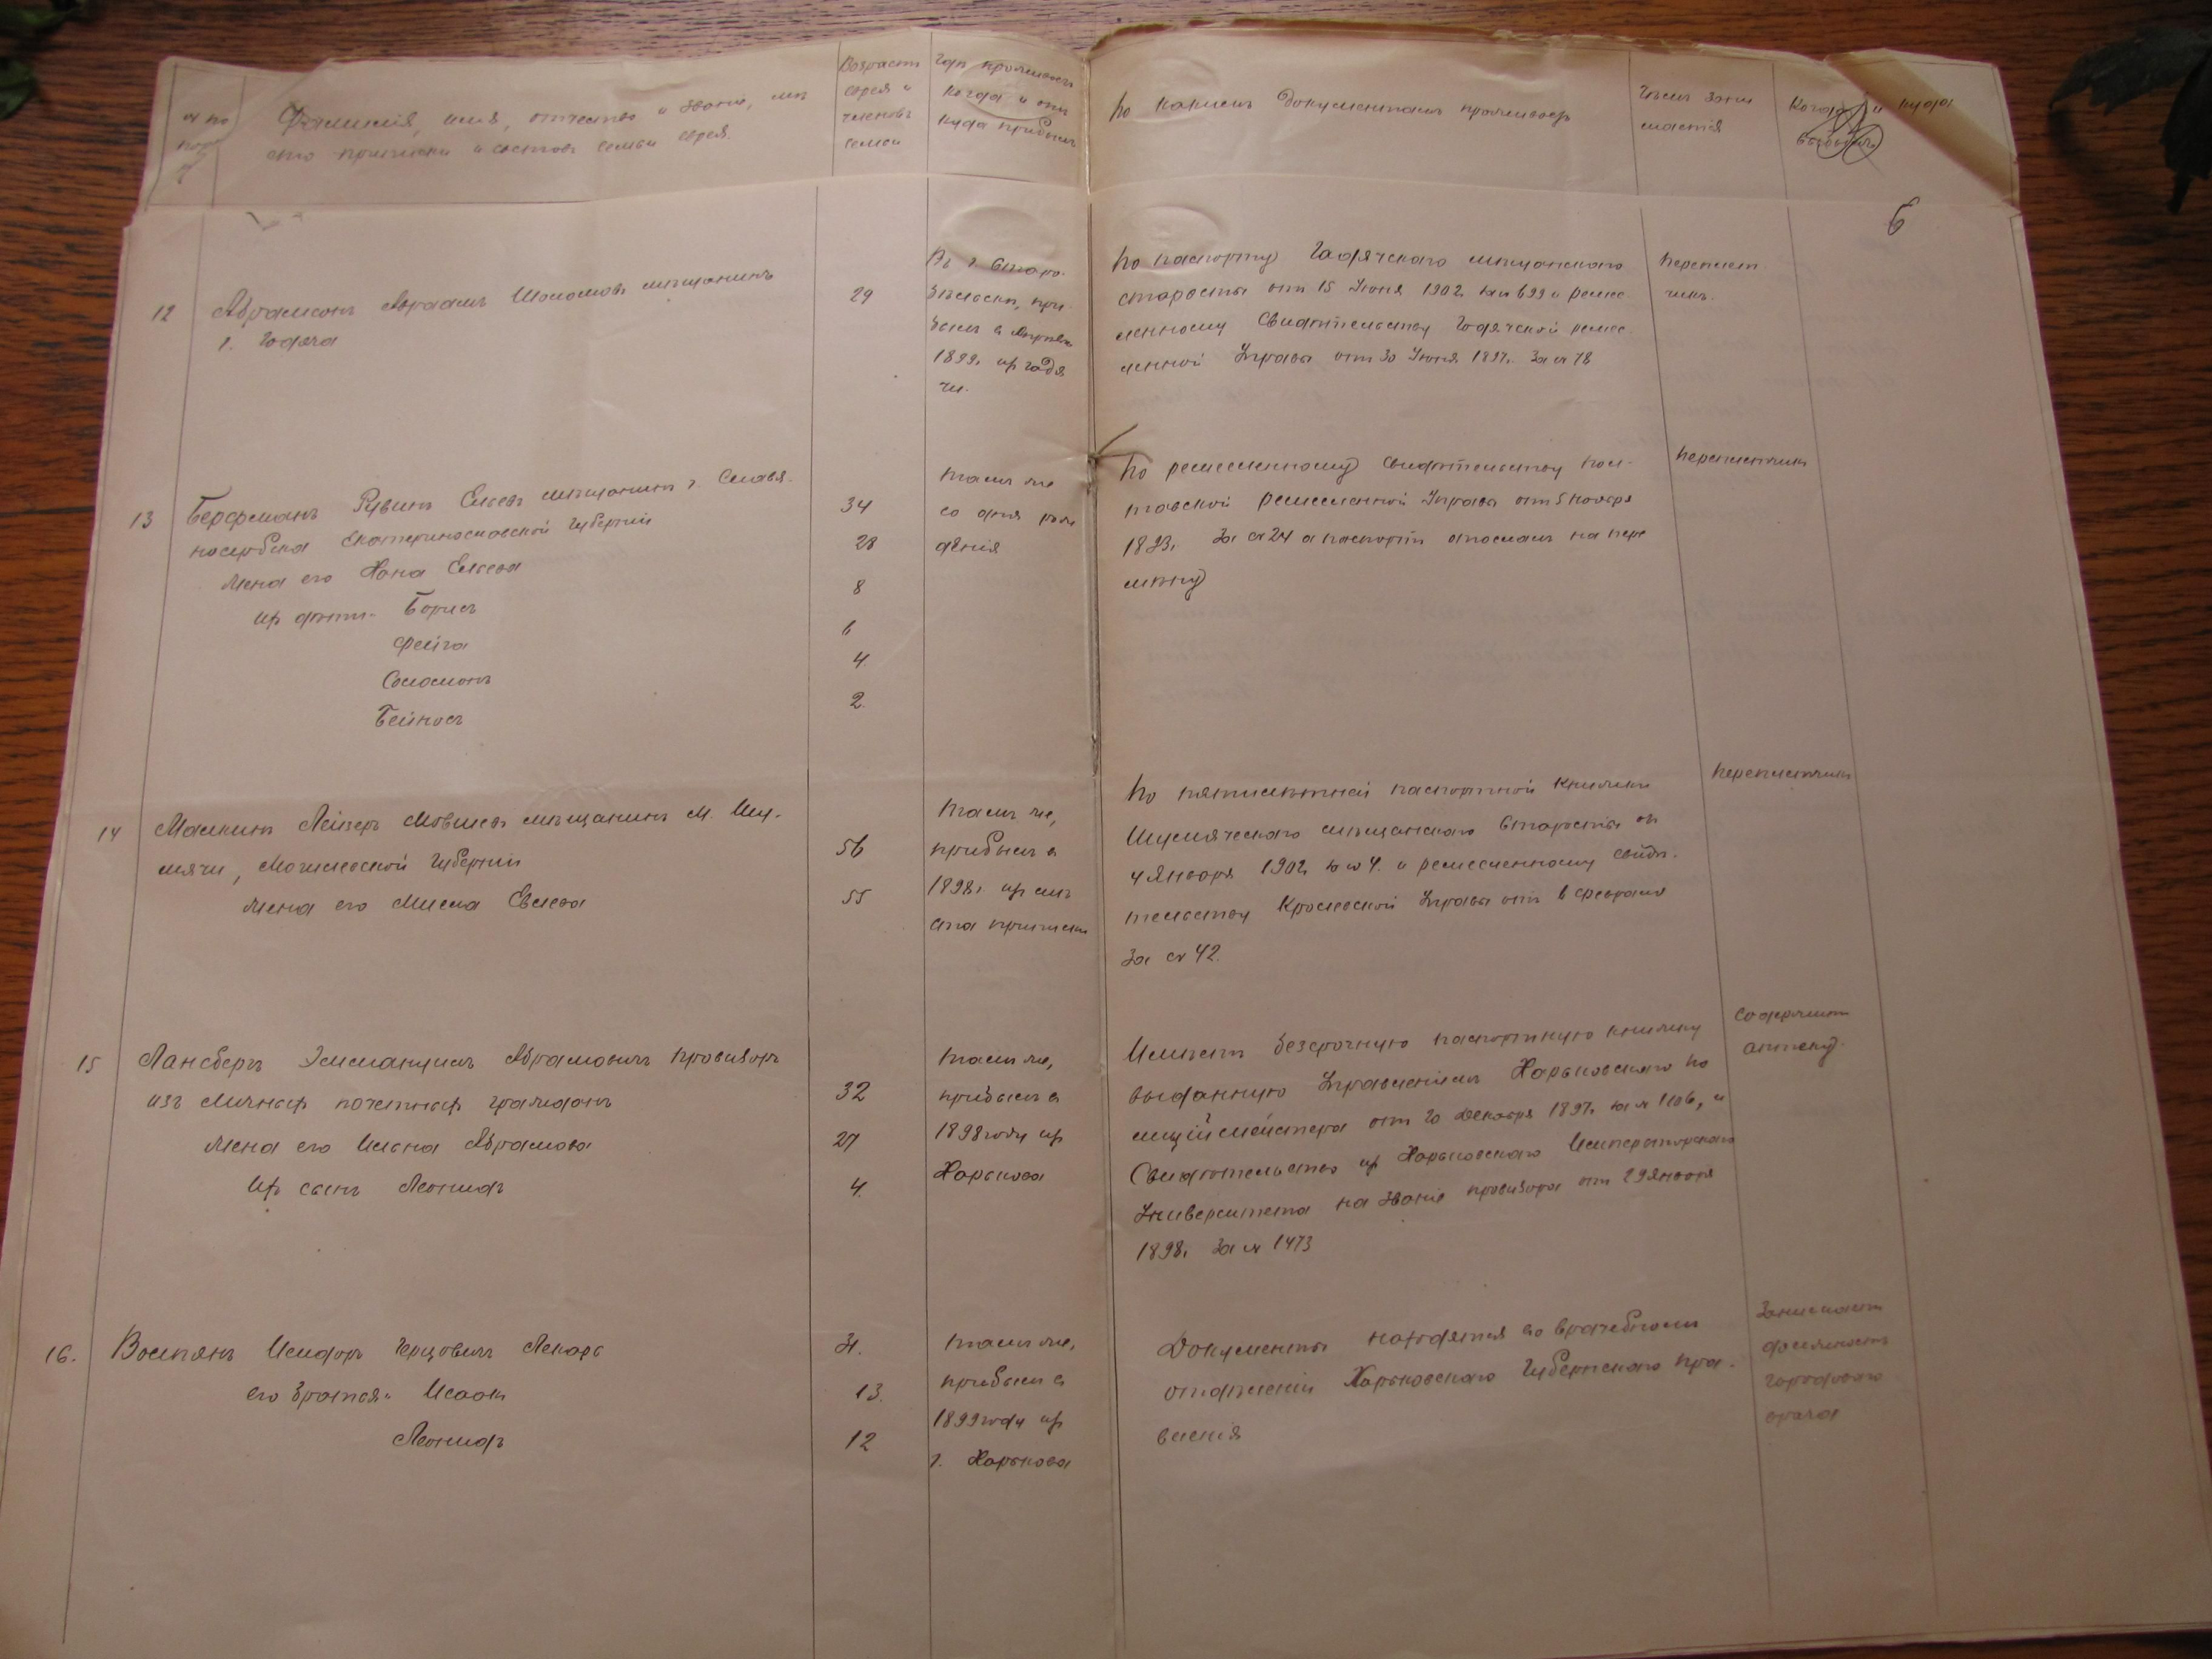 № по
Фамилія, имя, отчество и званіе, мѣ
сто приписки и составъ семьи еврея.
Возрастъ
еврея и
членовъ
семьи
Гдѣ проживаетъ
когда и от
куда прибылъ
По какимъ документамъ проживаетъ
Чѣмъ зани
мается
Когда и куда
выбылъ
6
12
Абрамсонъ Абраамъ Шоломовъ мѣщанинъ
г. Гадяча
29
Въ г. Старо-
бѣльскѣ, при-
былъ въ Апрѣлѣ
1899г. изъ Гадя
чи.
По паспорту Гадячскаго мѣщанскаго
старосты отъ 15 Іюня 1902г. за № 699 и ремес
ленному свидѣтельству Гадячской ремес-
ленной Управы отъ 30 Іюня 1897г. за № 78
Переплет-
чикъ.
13
Берфманъ Рувинъ Ельевъ мѣщанинъ г. Славя-
носербска Екатеринославской губерніи
жена его Хана Ельева
ихъ дѣти- Борисъ
Фейга
Соломонъ
Бейносъ
34
28
8
6
4.
2.
тамъ же
со дня рож
денія
По ремесленному свидѣтельству Пол-
тавской ремесленной Управы отъ 5 Ноября
1893г. за № 24 а паспортъ отосланъ на пере
мѣну
Переплетчикъ
14
Малкинъ Лейзеръ Мовшевъ мѣщанинъ м. Шу-
мячи, Могилевской губерніи
жена его Мисля Евлева
56
55
тамъ же,
прибылъ въ
1898г. изъ мѣ
ста приписки
По пятилѣтней паспортной книжкѣ
Шумяческаго мѣщанскаго Старосты отъ
4 Января 1902г. за № 4. и ремесленному свидѣ-
тельству Управы отъ 6 февраля
за № 42.
Переплетчикъ
15
Лансбергъ Эммануилъ Абрамовичъ провизоръ
изъ личныхъ почетныхъ гражданъ
жена его Абрамова
ихъ сынъ Леонидъ
32
27
4.
тамъ же,
прибылъ въ
1898 году изъ
Харькова
Имѣетъ безсрочную паспортную книжку
выданную Управленіемъ Харьковскаго По
лиціймейстера отъ 20 Декабря 1897г. за № 1106, и
свидѣтельство изъ Харьковскаго Императорскаго
Университета на званіе провизора отъ 29 Января
1898г. за № 1473
Содержитъ
аптеку.
16.
Исидоръ Герцовичъ Лекарь
его братья- Исаакъ
Леонидъ
31.
13.
12
тамъ же,
прибылъ въ
1899 году изъ
г. Харькова
Документы находятся во врачебномъ
отдѣленіи Харьковскаго Губернскаго Пра-
вленія
Занимаетъ
должность
городового
врача